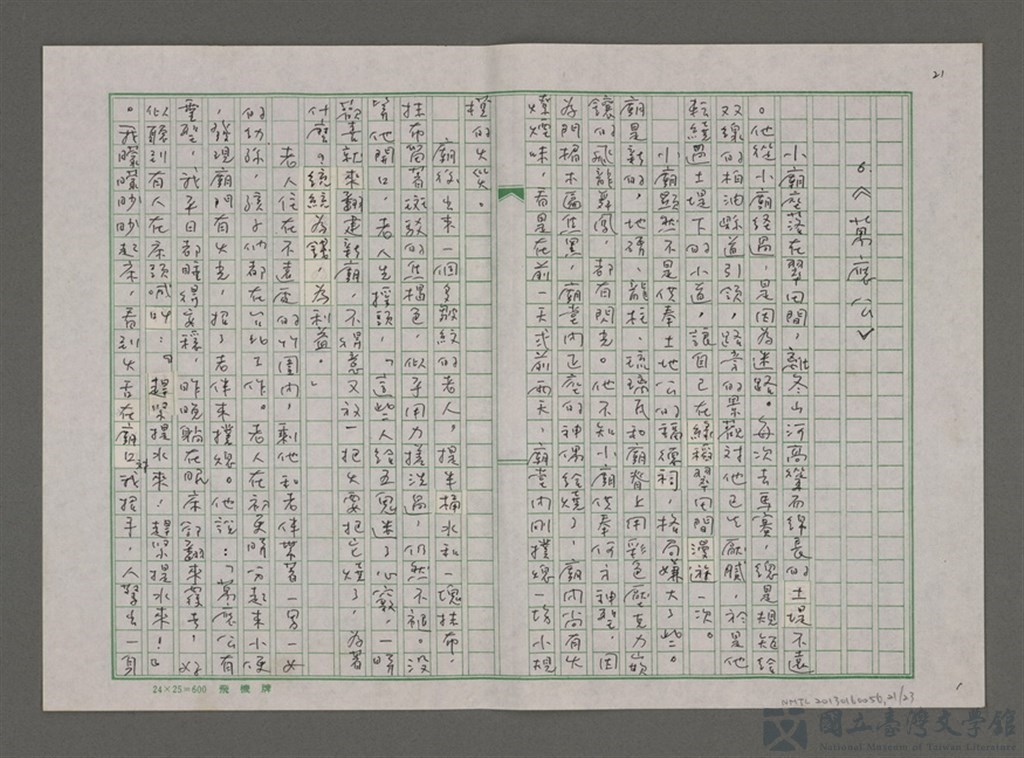 21
6.《萬應公》
小廟座落在翠田間,離冬山河高聳而綿長的土堤不遠
。他從小廟經過,是因為迷路。每次去馬賽,總是規矩給
双線的柏油縣道引領,路旁的景觀対他已生厭膩,於是他
転繞過土堤下的小道,讓自己在綠稻翠田間漫遊一次。
小廟顯然不是供奉土地公的福德祠,格局嫌大了些。
廟是新的,地磚、龍柱、琉璃瓦和廟脊上用彩色壓克力嵌
鑲的飛龍舞鳳,都有閃光。他不知小廟供奉何方神聖,因
為門楣木匾焦黑,廟堂內正座的神偶給燒了,廟內尚有火
燻煙味,看是在前一天或前兩天,廟堂內剛撲熄一場小規
模的火災。
廟後出來一個多皺紋的老人,提半桶水和一塊抹布,
抹布留著微散的焦褐色,似乎用力搓洗過,仍然不褪。沒
等他開口,老人先搖頭,「這些人給五鬼迷了心竅,一時
歡喜就來翻建新廟,不得意又放一把火要把它燒了,為著
什麼?統統為錢,為利益。」
老人住在不遠處的竹圍內,剩他和老伴帶著一男一女
的幼孫,孩子他都在台北工作。老人在初更時分起來小便
,發現廟門有火光,招了老伴來撲熄。他說:「萬應公有
靈聖,我平日都睡得安穩,昨晚躺在眠床卻翻來覆去,好
似聽到有人在床頭喊叫:『趕緊提水來!趕緊提水來!』
。我矇矇眇眇起床,看到火舌在廟口袂我招手,人驚出一身
24×25=600 飛機牌
NMTL 20130160056, 21/23
國立臺灣文學館
National Museum of Taiwan Literature